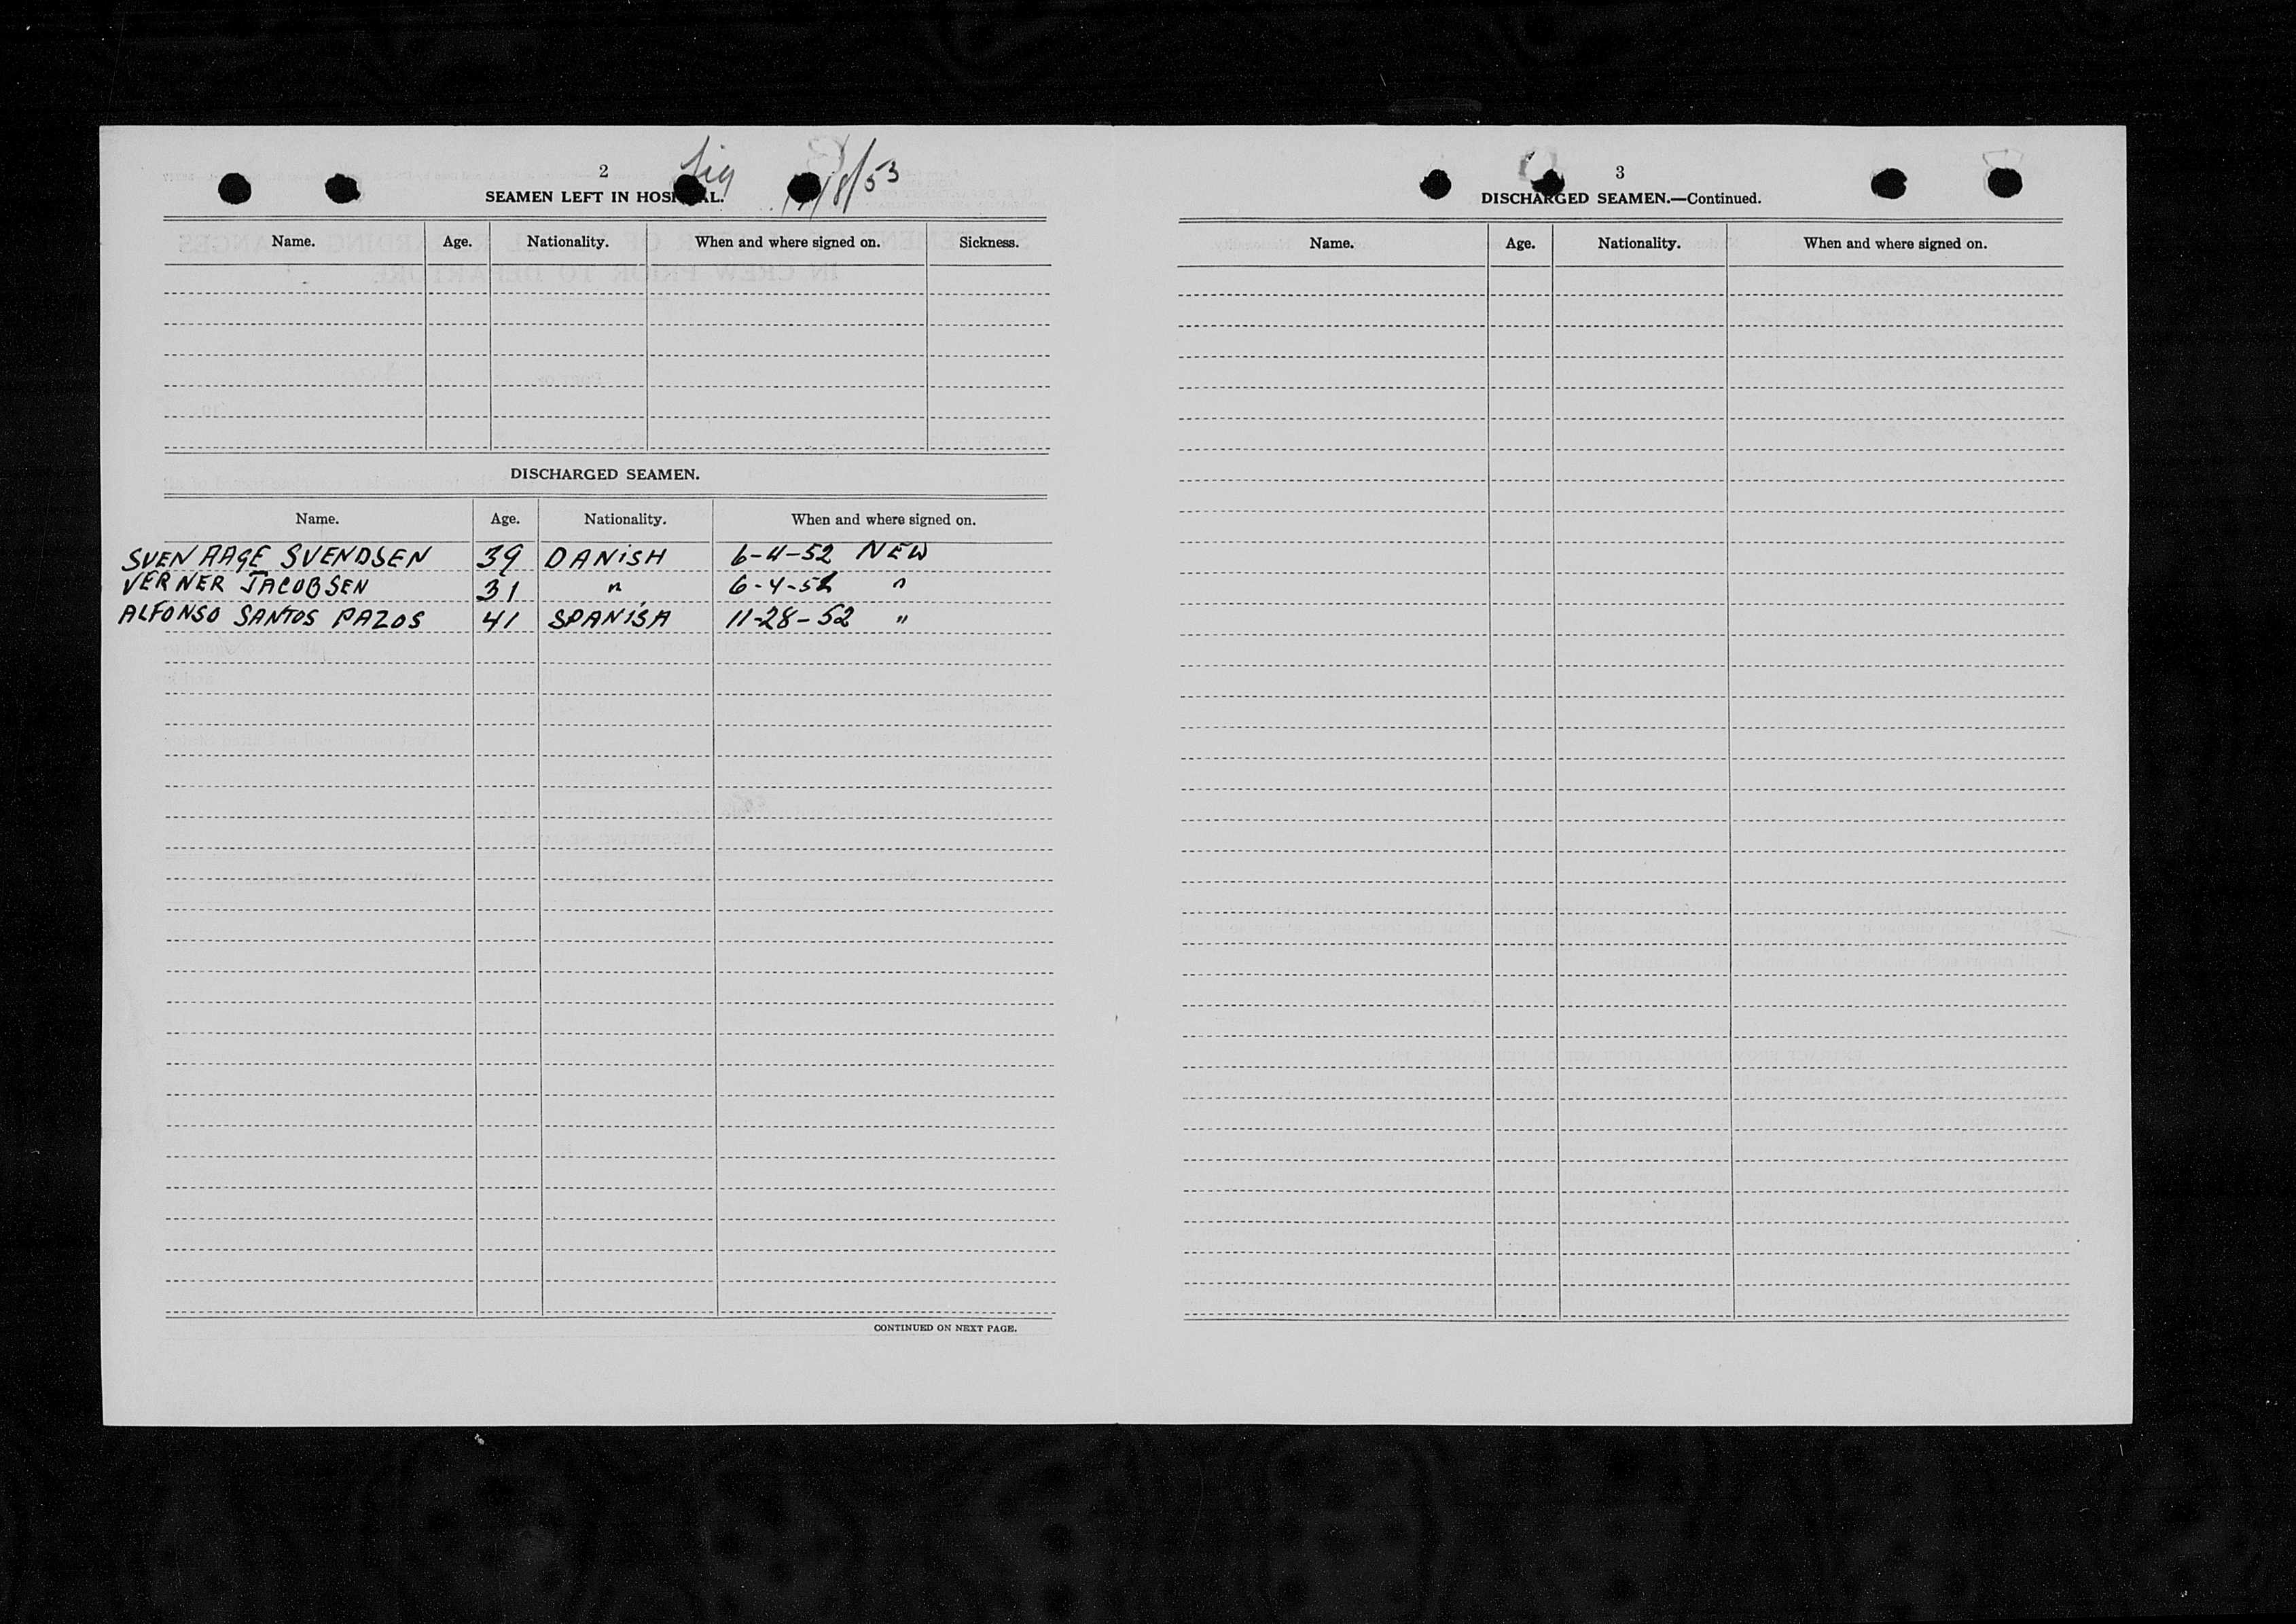 2
Sig
/8/53
SEAMEN LEFT IN HOSPITAL.
Name. Age. Nationality. When and where signed on. Sickness.
DISCHARGED SEAMEN.
Name. Age. Nationality. When and where signed on.
SVEN AAGE SVENDSEN 39 DANISH 6-4-52 NEW
VERNER JACOBSEN 31 " 6-4-52 "
ALFONSO SANTOS PAZOS 41 SPANISH 11-28-52 "
CONTINUED ON NEXT PAGE.
3
DISCHARGED SEAMEN.—Continued.
Name. Age. Nationality. When and where signed on.